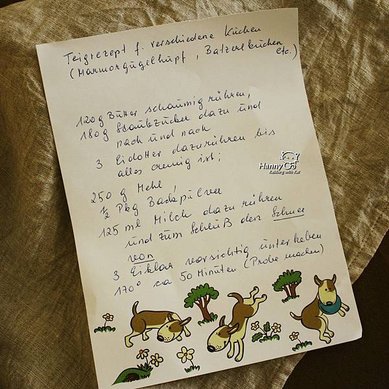 Teigrezept f. verschiedene Kuchen
(Marmorgugelhupf, Batzerlkuchen
etc.)
120g Butter schaumig rühren,
180g Staubzucker dazu und
nach und nach
3 Eidotter dazurühren bis
alles cremig ist;
Hanny
250 g Mehl
½ Pkg Backpulver
125 ml Milch dazu rühren
und zum Schluß den Schnee
von
3 Eiklar vorsichtig unterheben
170° ca 50 Minuten (Probe machen)